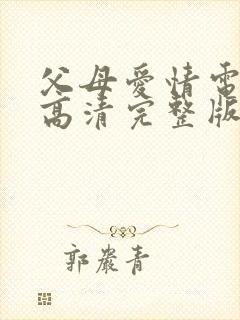 父母愛情電
高清完整版
郭嚴青